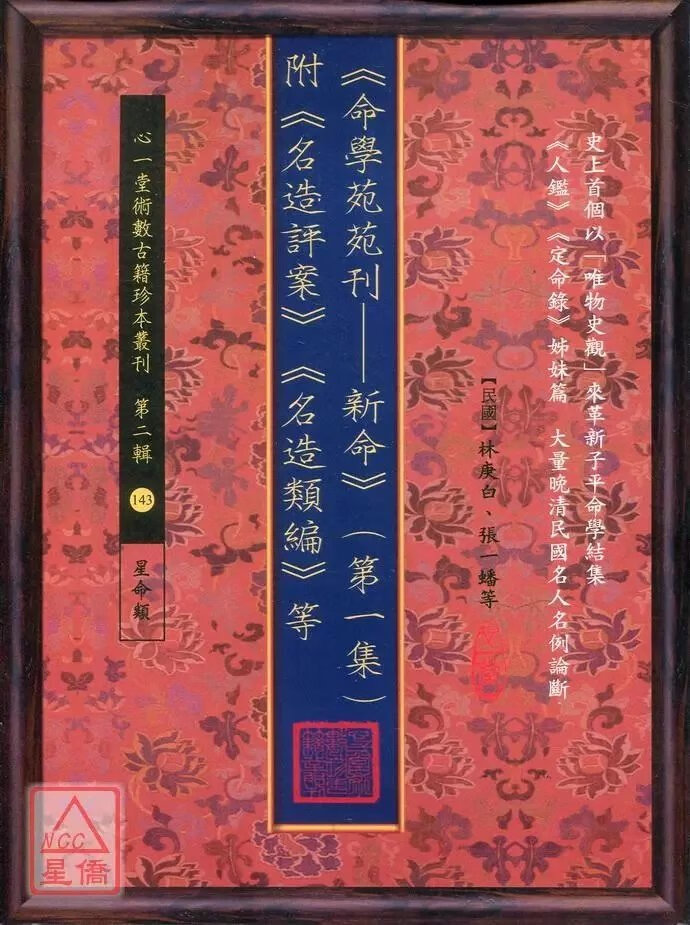 史上首個以「唯物史觀」來革新子平命學結集
《人鑑》《定命錄》姊妹篇 大量晚清民國名人名例論斷
【民國】林庚白、張一蟠等
《命學苑苑刊——新命》(第一集)
附《名造評案》《名造類編》等
心一堂術數古籍珍本叢刊 第二輯
143
星命類
NCC
星僑